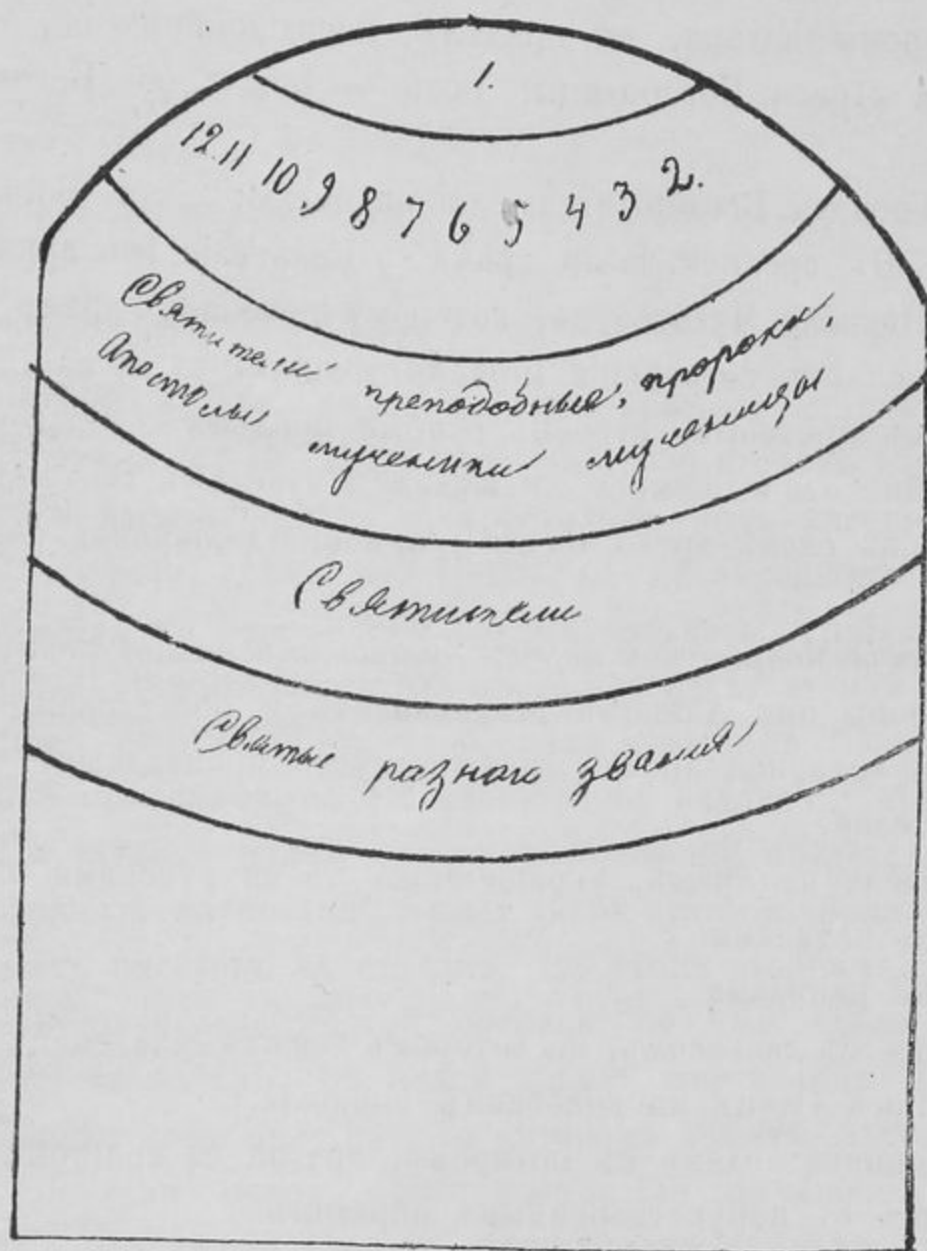 1.
12 11 10 9 8 7 6 5 4 3 2.
Святители преподобные, пророки,
Апостолы мученики мученицы
Святители
Святые разного звания